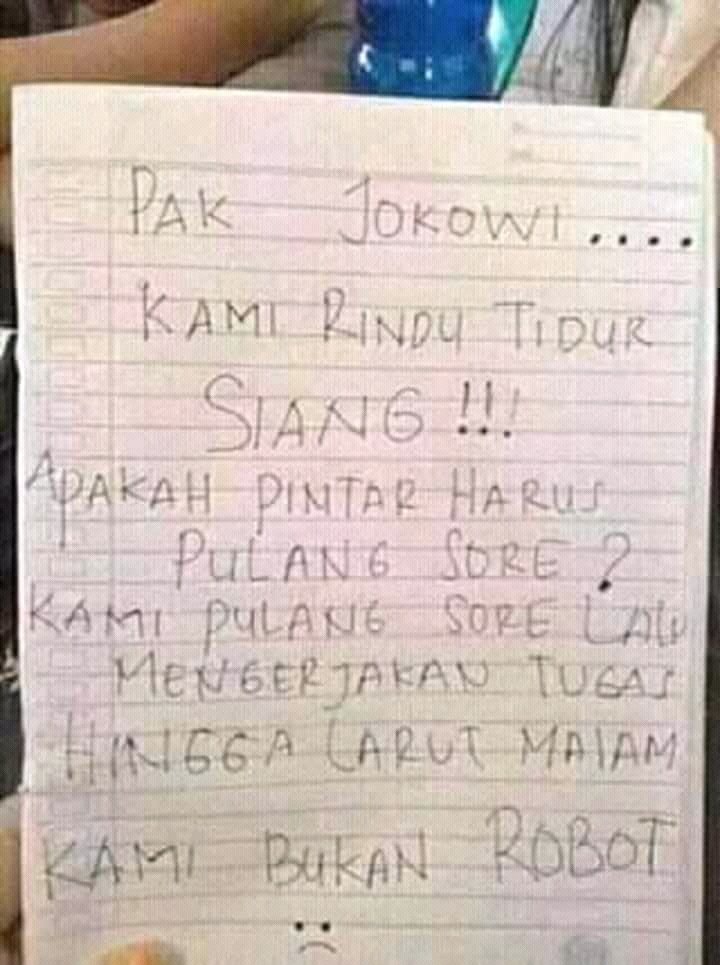 PAK JOKOWI ....
KAMI RINDU TIDUR
SIANG !!!
APAKAH PINTAR HARUS
PULANG SORE ?
KAMI PULANG SORE LALU
MENGERJAKAN TUGAS
HINGGA LARUT MALAM
KAMI BUKAN ROBOT
:(